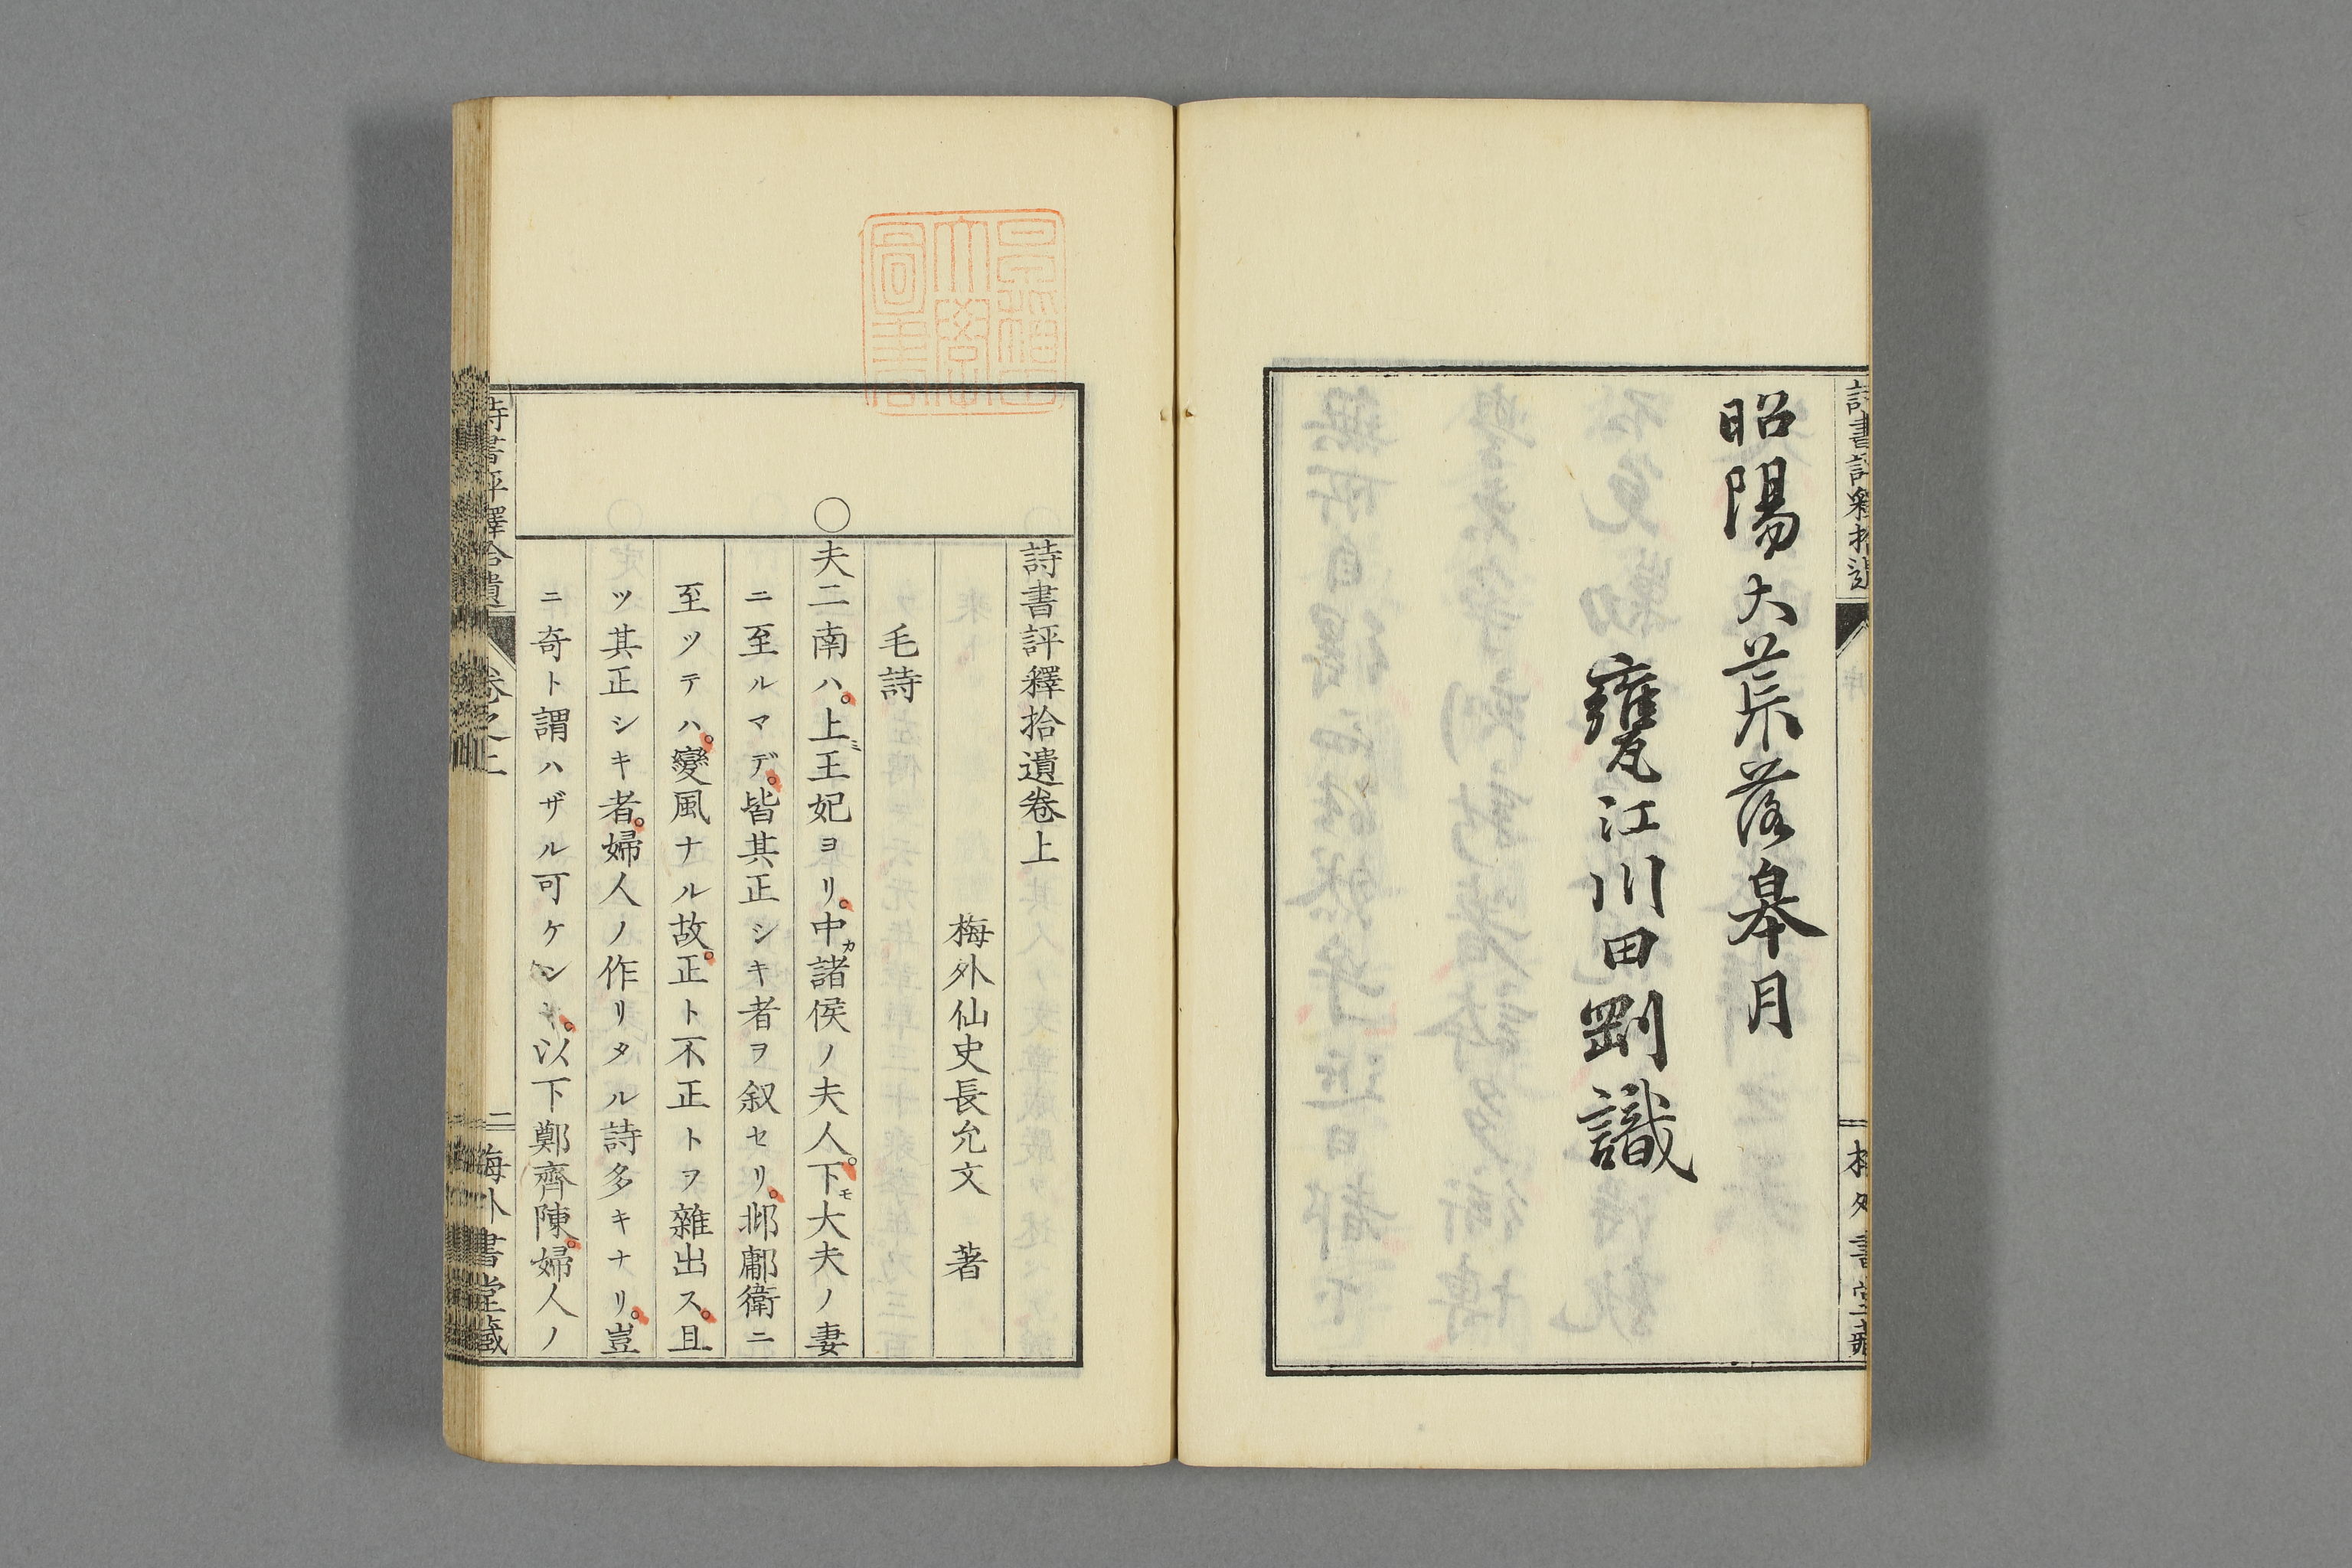 昭陽大荒落皋月
甕江川田剛識
詩書評釋拾遺卷上
梅外仙史長允文　著
毛詩
〇夫二南ハ。上ミ王妃ヨリ。中カ諸侯ノ夫人。下モ大夫ノ妻
ニ至ルマデ。皆其正シキ者ヲ叙セリ。邶鄘衛ニ
至ツテハ。變風ナル故。正ト不正トヲ雜出ス。且
ツ其正シキ者。婦人ノ作リタル詩多キナリ。豈
ニ奇ト謂ハザル可ケンヤ。以下鄭齊陳。婦人ノ
詩書評釋拾遺
卷之上
二
梅外書堂藏